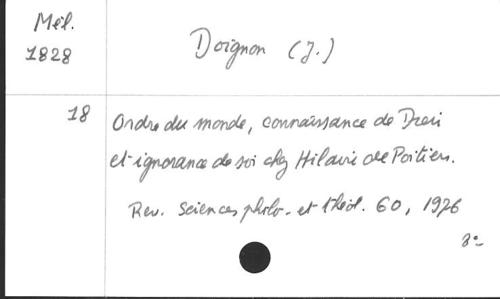 Mél.
1828
Doignon (J.)
18
Ordre du monde, connaissance de Dieu
et ignorance de soi chez Hilaire de Poitiers.
Rev. Sciences philo. et théol. 60, 1976
8°